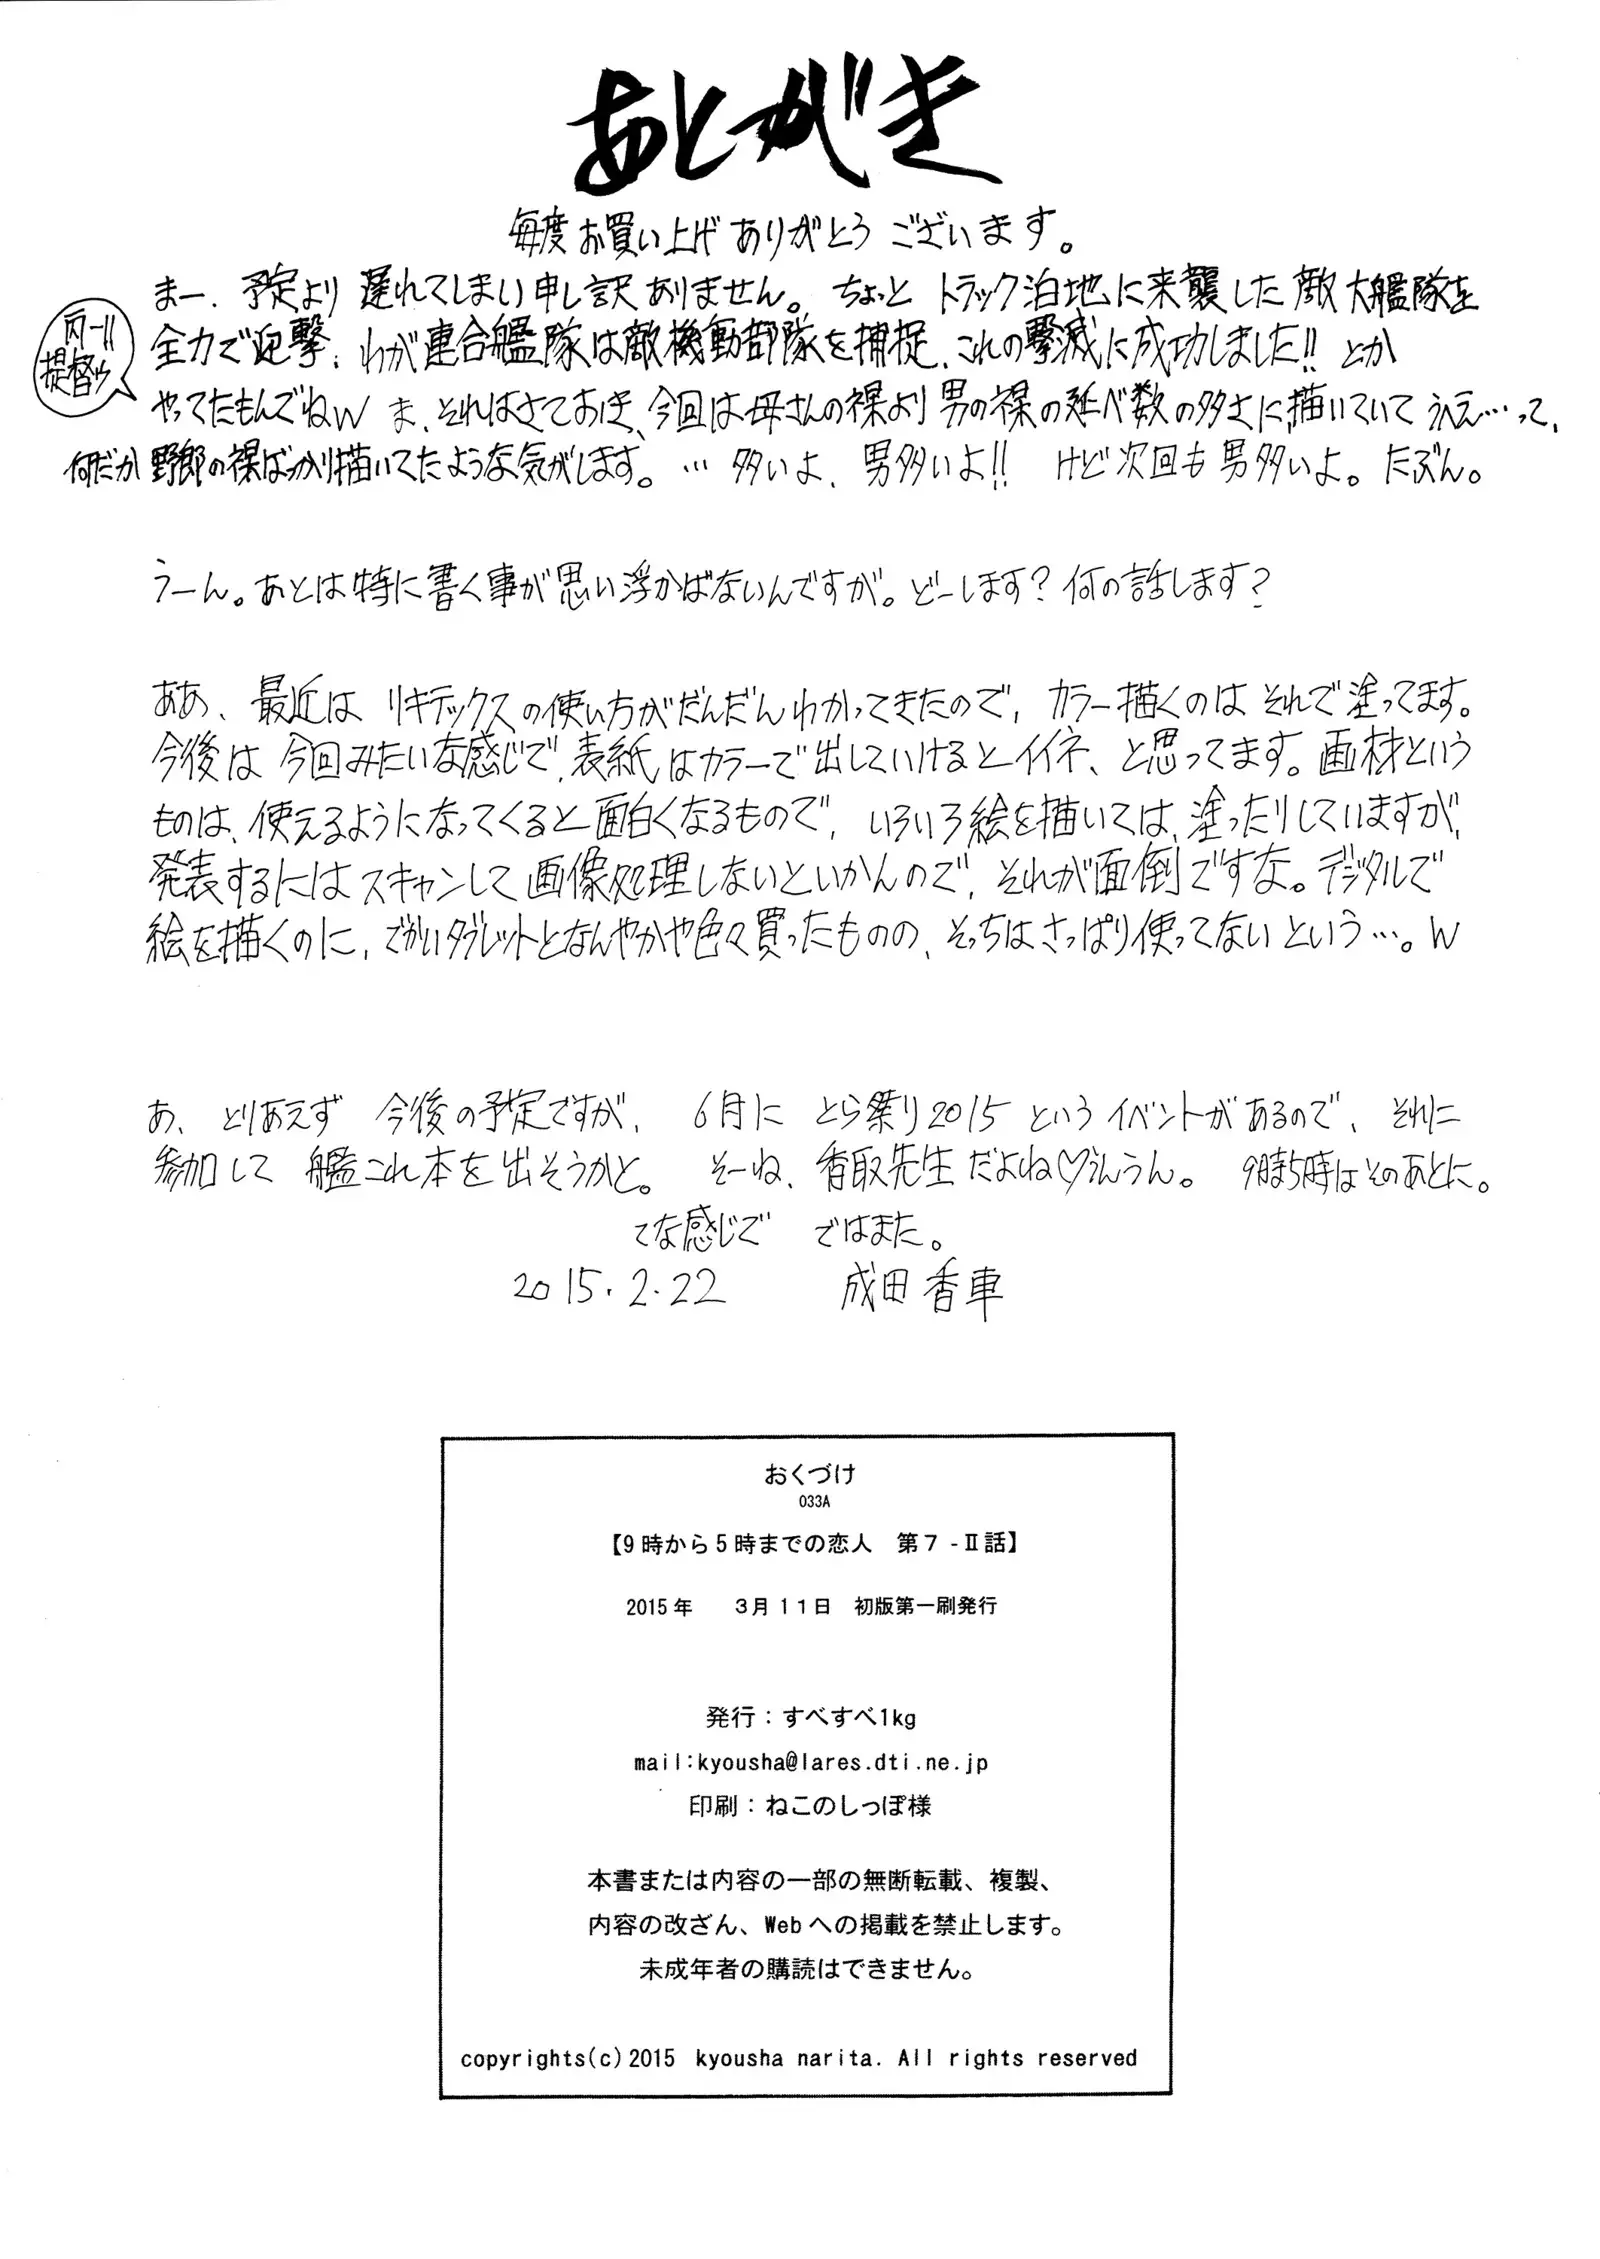 あとがき
毎度お買い上げありがとうございます。
まー、予定より遅れてしまい申し訳ありません。ちょっとトラック泊地に来襲した敵大艦隊を
全力で迎撃、わが連合艦隊は敵機動部隊を捕捉、これの撃滅に成功しました!!とか
提督ゥ
やってたもんでねw ま、それはさておき、今回は母さんの裸より男の裸の延べ数の多さに、描いていてうえ…って、
何だか野郎の裸ばっかり描いてたような気がします。…多いよ、男多いよ!! けど次回も男多いよ。たぶん。
うーん。あとは特に書く事が思い浮かばないんですが。どーします?何の話します?
ああ、最近はリキテックスの使い方がだんだんわかってきたので、カラー描くのはそれで塗ってます。
今後は今回みたいな感じで、表紙はカラーで出していけるとイイネ、と思ってます。画材という
ものは、使えるようになってくると面白くなるもので、いろいろ絵を描いては、塗ったりしていますが、
発表するにはスキャンして画像処理しないといかんので、それが面倒ですな。デジタルで
絵を描くのに、でかいタブレットとなんやかや色々買ったものの、そっちはさっぱり使ってないという…。w
あ、とりあえず今後の予定ですが、6月にとら祭り2015というイベントがあるので、それに
参加して艦これ本を出そうかと。そーね、香取先生だよね♡うんうん。9時5時はそのあとに。
てな感じで ではまた。
2015.2.22 成田香車
おくづけ
033A
【9時から5時までの恋人 第7-Ⅱ話】
2015年 3月11日 初版第一刷発行
発行：すべすべ1kg
mail:kyousha@lares.dti.ne.jp
印刷：ねこのしっぽ様
本書または内容の一部の無断転載、複製、
内容の改ざん、Webへの掲載を禁止します。
未成年者の購読はできません。
copyrights(c)2015 kyousha narita. All rights reserved